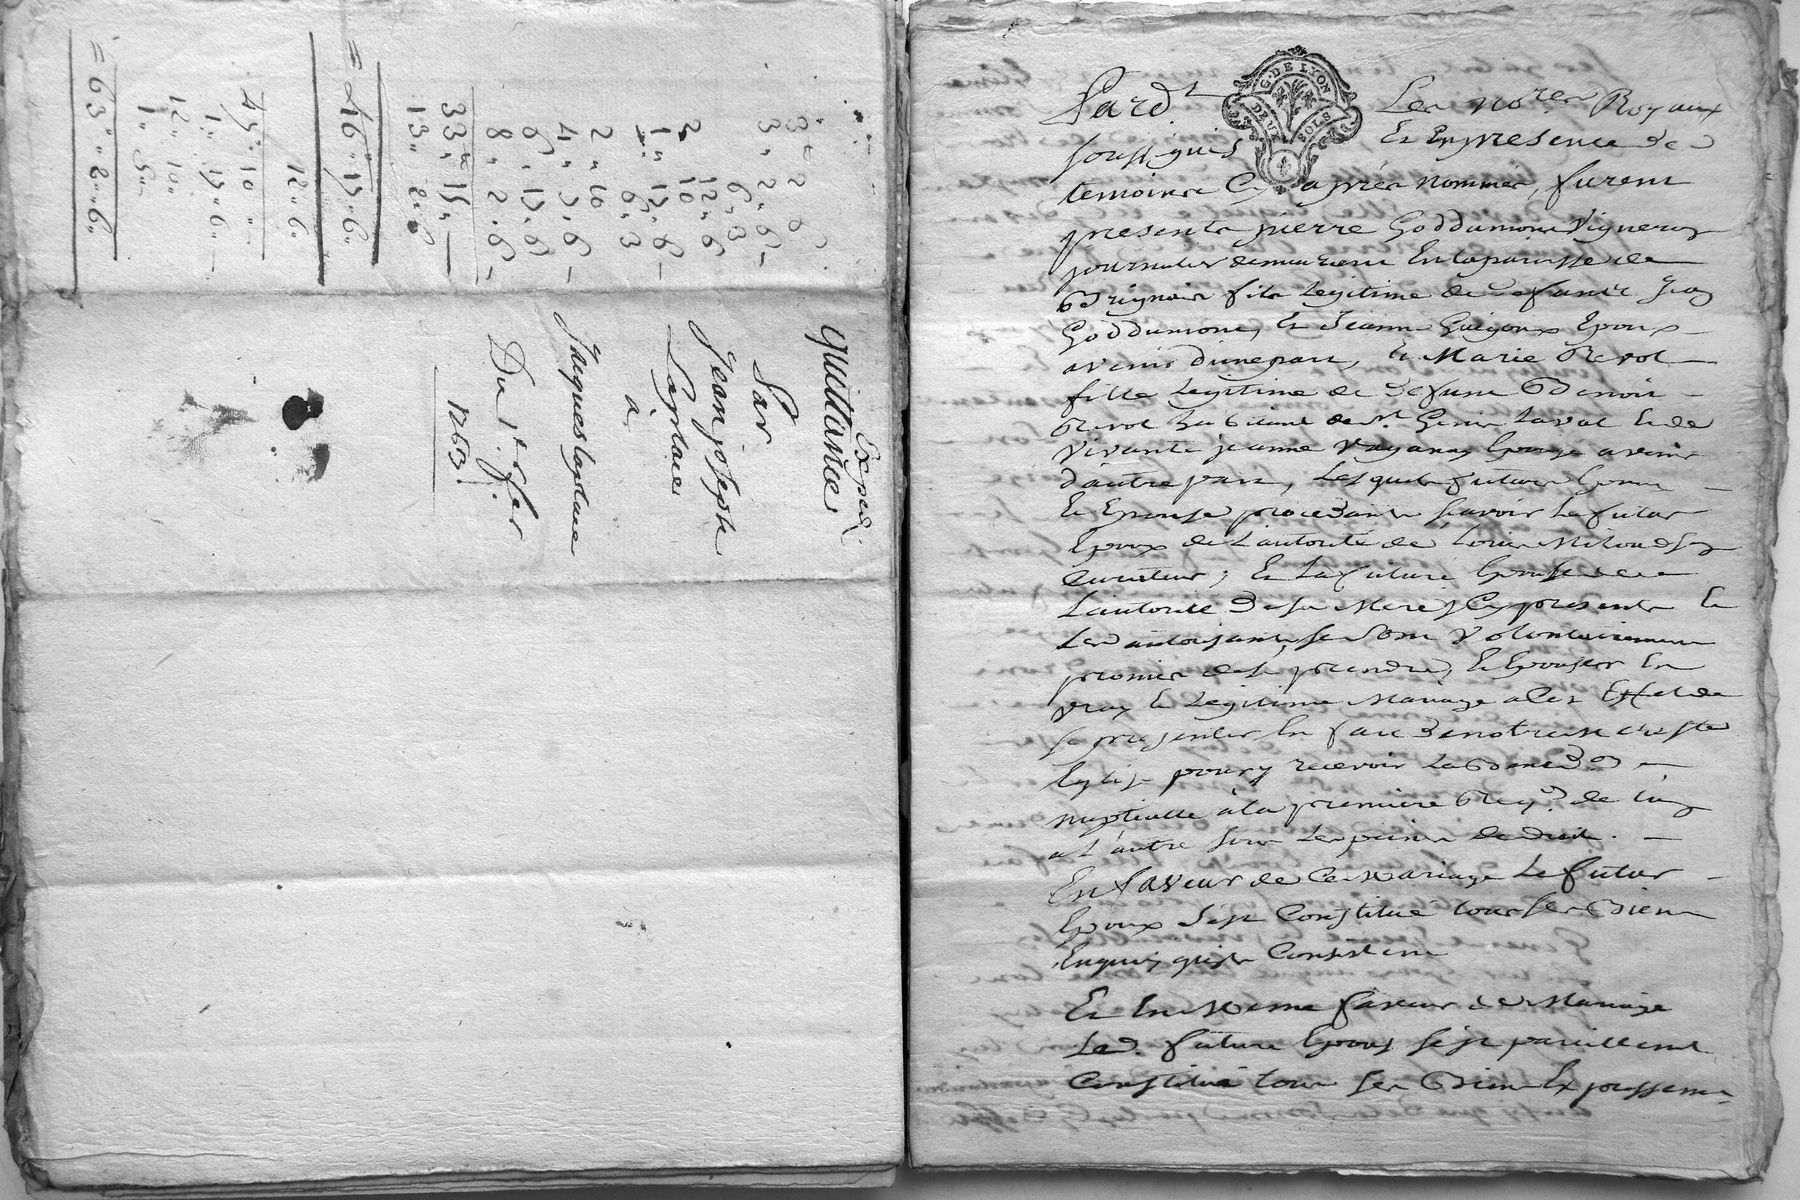 3tt 2 6
3" 2" 6"
6" 3
12" 6
2 10
1" 12" 6
6" 3
2" 10
4" 3" 6
8" 2" 6
33tt 15"
13" 2" 6
= 46" 17" 6
12" 6
45" 10"
1" 17" 6
12" 10"
1" 5"
= 63" 2" 6
Exped
quittance
Par
Jean joseph
Laplace
a
Jaques laplace
Du 1er fer
1763
G. DE LYON
DEUX SOLS
Pardt Les nores Royaux
soussignés Et En presence de
temoins Cy aprés nommes, furent
presents pierre Goddumone Vigneron
journalier demeurant En la paroisse de
Brignais fils Legitime de defunt Jean
Goddumone, Et Jeanne Epoux
avenir d'une part, Et Marie Revol
fille Legitime de defunt Benoit
Revol habitant de St. Genis Laval Et de
vivante jeanne Epouse avenir
d'autre part, Lesquels futurs Epoux
Et Epouse procedants sçavoir Le futur
Epoux de L'autorité de Louis son
Curateur, Et La future Epouse de
L'autorité de sa Mere, Cy presents Et
Les autorisants, se sont volontairement
promis de se prendre, Et Epouser En
vray Et Legitime Mariage a Cet Effet de
se presenter En face de notre ste
Eglise pour y recevoir La Benedon
nuptialle à la premiere Reqon de L'un
a L'autre sous Les peines de droit.
En faveur de Ce Mariage Le futur
Epoux s'est Constitué tous ses Biens
Enquoy qu'ils Consistent
Et En Meme faveur de Mariage
Lad. future Epouse s'est pareillement
Constitué tous ses Biens Expressement